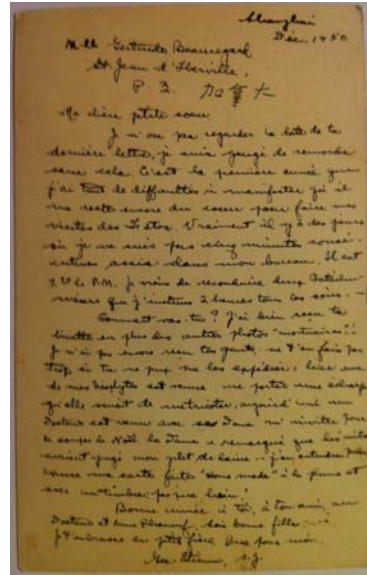 Shanghai
Déc. 1950
Mlle Gertrude Beauregard
St Jean d'Iberville,
P. Q. 加拿大
Ma chère petite soeur
Je n'ose pas regarder la date de ta
dernière lettre, je suis rongé de remords
sans cela. C'est la première année que
j'ai tant de difficultés à manifester qu'il
me reste encore du coeur pour faire mes
visites des Fêtes. Vraiment il y a des jours
où je ne suis pas cinq minutes consé-
cutives assis dans mon bureau. Il est
P.M. je viens de reconduire deux Catéchu-
mènes que j'instruis 2 heures tous les soirs.
Comment vas-tu? J'ai bien reçu ta
en plus des autres photos
Je n'ai pas encore reçu tes gants, ne t'en fais pas
trop si tu ne peux me les expédier;
de mes néophytes est venue me porter une écharpe
qu'elle venait de me tricoter, aujourd'hui un
Docteur est venu avec sa Dame m'inviter pour
le souper de Noël la Dame a remarqué que les mites
avaient mon gilet de laine
une carte faite "Home made" à la plume et
avec un timbre
Bonne année à toi, à ton ami, au
Docteur et Mme sa bonne fille
Je t'embrasse en petit frère. Prie pour moi.
s.j.